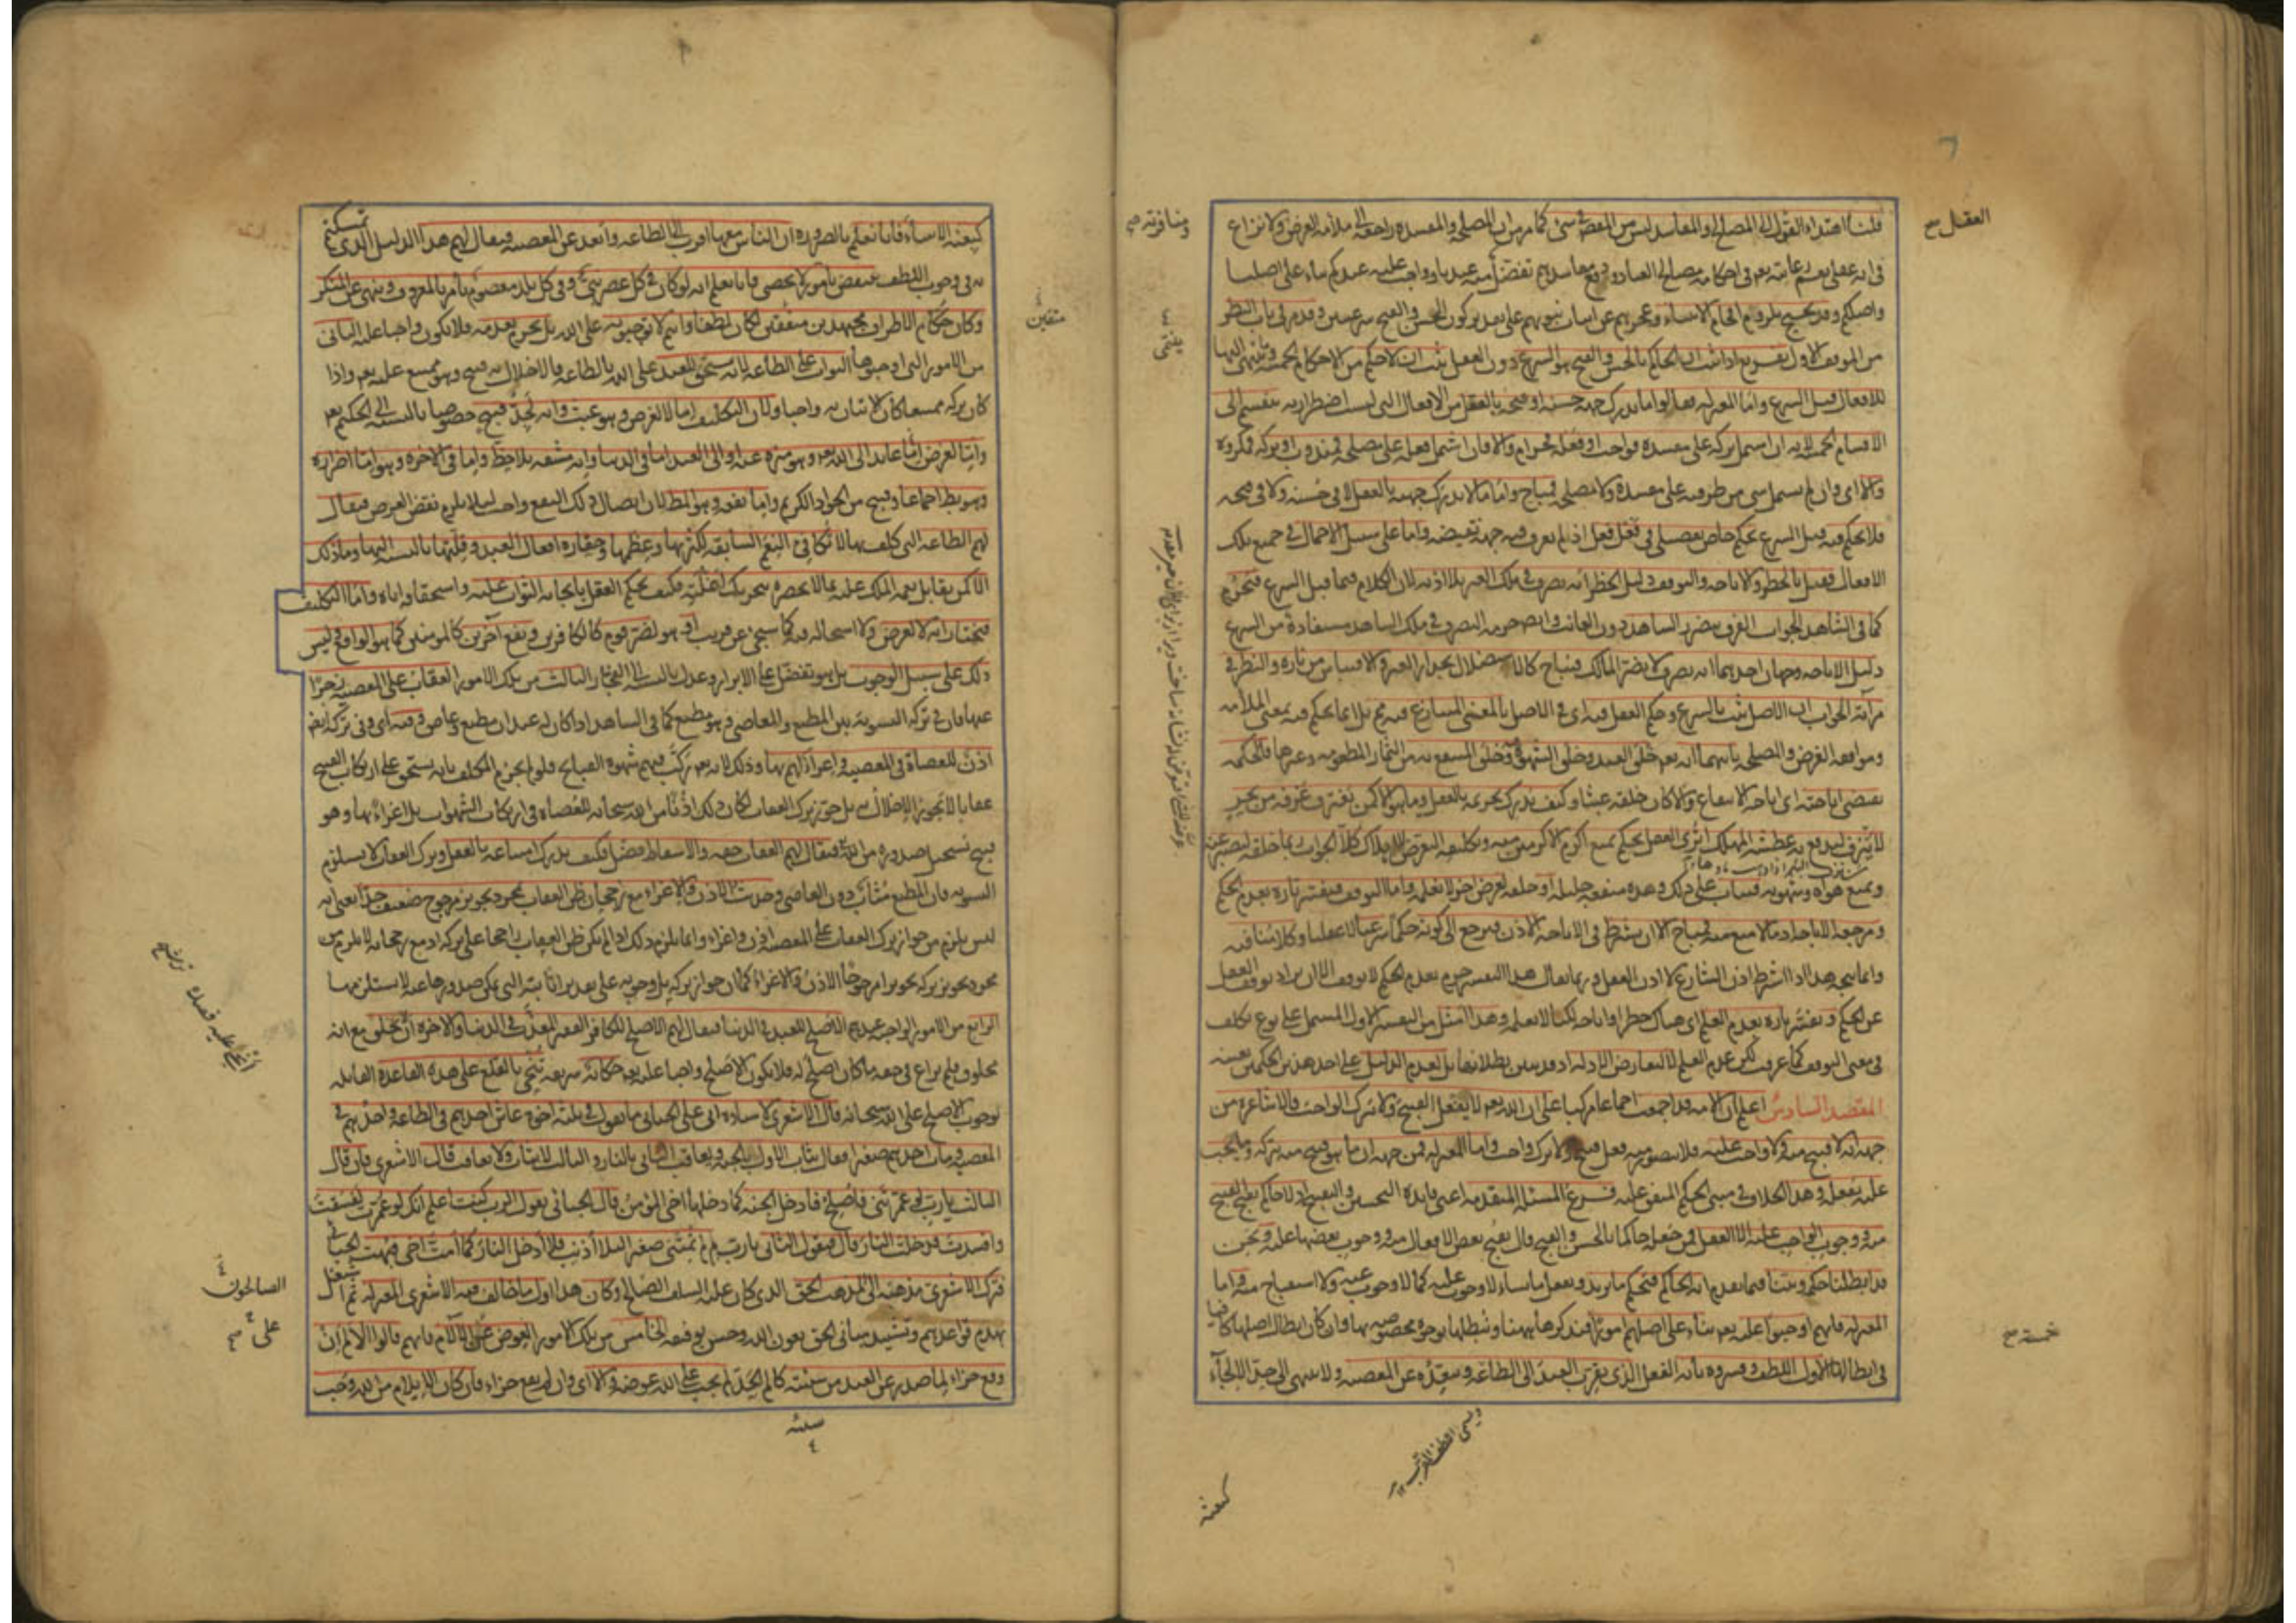 العقل صح
ومنافرته صح
قلنا اهتداء العقول الى المصالح والمفاسد ليس من المقصود فى شئ كما مر من ان المصلحة والمفسدة راجعة الى ملائمة الغرض ولا نزاع
فى انه عقلى نعم رعايته تعم فى احكامه مصالح العباد ودفع مفاسدهم تفضل منه عندنا وواجب عليه عندكم بناء على اصلنا
واصلكم وقد يحتج بلزوم افحام الانبياء وعجزهم عن اثبات نبوتهم على تقدير كون الحسن والقبح شرعيين وقد مر فى باب النظر
من الموقف الاول تفريع اذا ثبت ان الحاكم بالحسن والقبح هو الشرع دون العقل ثبت ان لا حكم من الاحكام الخمسة وما ينتمى اليها
للافعال قبل الشرع واما المعتزلة فقالوا ما يدرك جهة حسنه او قبحه بالعقل من الافعال التى ليست اضطرارية ينقسم الى
الاقسام الخمسة لانه ان اشتمل تركه على مفسدة فواجب او فعله فحرام والا فان اشتمل فعله على مصلحة فمندوب او تركه فمكروه
والا اى وان لم يشتمل شئ من طرفيه على مفسدة ولا مصلحة فمباح واما ما لا يدرك جهته بالعقل لا فى حسنه ولا فى قبحه
فلا يحكم فيه قبل الشرع بحكم خاص تفصيلى فى فعل فعل اذ لم يعرف فيه جهة تقتضيه واما على سبيل الاجمال فى جميع تلك
الافعال فقيل بالحظر والاباحة والتوقف دليل الحظر انه تصرف فى ملك الغير بلا اذنه لان الكلام فيما قبل الشرع فيحرم
كما فى الشاهد الجواب الفرق بتضرر الشاهد دون الغائب وايضا حرمة التصرف فى ملك الشاهد مستفادة من الشرع
دليل الاباحة وجهان احدهما انه تصرف لا يضر المالك فيباح كالاستظلال بجدار الغير والاقتباس من ناره والنظر فى
مرآته الجواب ان الاصل ثبت بالشرع وحكم العقل فيه اى فى الاصل بالمعنى المتنازع فيه مم بل انما يحكم فيه بمعنى الملائمة
وموافقة الغرض والمصلحة ثانيهما انه تعم خلق العبد وخلق الشهوة فيه وخلق المنتفع به من الثمار المطعومة وغيرها فالحكمة
تقتضى اباحته اى اباحة الانتفاع والا كان خلقه عبثا وكيف يدرك تحريمه بالعقل وما هو الا كمن يغترف غرفة من بحر
لا ينزف ليدفع به عطشه المهلك اترى العقل يحكم بمنع اكرم الاكرمين منه وتكليفه التعرض للهلاك كلا الجواب ربما خلقه ليصبر عنه
ويمنع هواه وشهوته فيثاب على ذلك وهذه منفعة جليلة او خلقه لغرض آخر لا نعلمه واما التوقف فيفسر تارة بعدم الحكم
ومرجعه الاباحة اذ ما لا منع منه فمباح الا ان يشترط فى الاباحة الاذن فيرجع الى كونه حكما شرعيا لا عقليا وكلامنا فيه
وانما يتجه هذا اذا اشترط اذن الشارع لا اذن العقل وربما يقال هذا التفسير جزم بعدم الحكم لا توقف الا ان يراد توقف العقل
عن الحكم ويفسر تارة بعدم العلم اى هناك حظر او اباحة لكنا لا نعلمه وهذا امثل من التفسير الاول المشتمل على نوع تكلف
فى معنى التوقف كما عرفت لكن عدم العلم لا لتعارض الادلة اذ قد تبين بطلانها بل لعدم الدليل على احد هذين الحكمين بعينه
المقصد السادس اعلم ان الامة قد اجمعت اجماعا مركبا على ان الله تعم لا يفعل القبيح ولا يترك الواجب فالاشاعرة من
جهة انه لا قبيح منه ولا واجب عليه فلا يتصور منه فعل قبيح ولا ترك واجب واما المعتزلة فمن جهة ان ما هو قبيح منه يتركه وما يجب
عليه يفعله وهذا الخلاف فى مبنى الحكم المتفق عليه فرع المسئلة المتقدمة اعنى قاعدة التحسين والتقبيح اذ لا حاكم بقبح القبيح
منه ووجوب الواجب عليه الا العقل فمن جعله حاكما بالحسن والقبح قال بقبح بعض الافعال منه ووجوب بعضها عليه ونحن
قد ابطلنا حكمه وبينا فيما تقدم انه الحاكم فيحكم ما يريد ويفعل ما يشاء لا وجوب عليه كما لا وجوب عنه ولا استقباح منه واما
المعتزلة فانهم اوجبوا عليه تعم بناء على اصلهم امورا فنذكرها ههنا ونبطلها بوجوه مخصوصة بها وان كان ابطال اصلها كافيا
فى ابطالها الاول اللطف وفسروه بانه الفعل الذى يقرب العبد الى الطاعة ويبعده عن المعصية ولا ينتهى الى حد الالجاء
خمسة صح
ويسمى اللطف المقرب
كبعثة
كبعثة الانبياء فانا نعلم بالضرورة ان الناس معها اقرب الى الطاعة وابعد عن المعصية فيقال لهم هذا الدليل الذى تمسكتم
به فى وجوب اللطف ينتقض بامور لا تحصى فانا نعلم انه لو كان فى كل عصر نبى وفى كل بلد معصوم يأمر بالمعروف وينهى عن المنكر
وكان حكام الاطراف مجتهدين متقين لكان لطفا وانتم لا توجبونه على الله بل نجزم بعدمه فلا يكون واجبا عليه الثانى
من الامور التى اوجبوها الثواب على الطاعة لانه مستحق للعبد على الله بالطاعة فالاخلال به قبيح وهو ممتنع عليه تعم واذا
كان تركه ممتنعا كان الاتيان به واجبا ولان التكليف اما لا لغرض وهو عبث وانه لجد قبيح خصوصا بالنسبة الى الحكيم تعم
واما لغرض اما عائد الى الله تعم وهو منزه عنه او الى العبد اما فى الدنيا وانه مشقة بلا حظ واما فى الآخرة وهو اما اضراره
وهو بط اجماعا وقبيح من الجواد الكريم واما نفعه وهو المط لان ايصال ذلك النفع واجب لئلا يلزم نقض الغرض فيقال
لهم الطاعة التى كلف بها لا تكافئ النعم السابقة لكثرتها وعظمها وحقارة افعال العبد وقلتها بالنسبة اليها وما ذلك
الا كمن يقابل نعمة الملك عليه بما لا يحصره بتحريك انملته فكيف يحكم العقل بايجابه الثواب عليه واستحقاقه اياه واما التكليف
فنختار انه لا لغرض ولا استحالة فيه كما سيجئ عن قريب او هو لضر قوم كالكافرين ونفع آخرين كالمؤمنين كما هو الواقع وليس
ذلك على سبيل الوجوب بل هو تفضل على الابرار وعدل بالنسبة الى الفجار الثالث من تلك الامور العقاب على المعصية زجرا
عنها فان فى تركه التسوية بين المطيع والعاصى وهو قبيح كما فى الشاهد اذا كان له عبدان مطيع وعاص وفيه اى وفى تركه ايض
اذن للعصاة فى المعصية واغراء لهم بها وذلك لانه تعم ركب فيهم شهوة القبائح فلو لم يجزم المكلف بانه يستحق على ارتكاب القبيح
عقابا لا يجوز الاخلال به بل جوز ترك العقاب لكان ذلك اذنا من الله سبحانه للعصاة فى ارتكاب الشهوات بل اغراء بها وهو
قبيح يستحيل صدوره من الله فيقال لهم العقاب حقه والاسقاط فضل فكيف يدرك امتناعه بالعقل وترك العقاب لا يستلزم
التسوية فان المطيع مثاب دون العاصى وحديث الاذن والاغراء مع رجحان ظن العقاب بمجرد تجويز مرجوح ضعيف جدا يعنى انه
ليس يلزم من جواز ترك العقاب على المعصية اذن واغراء وانما يلزم ذلك اذا لم يكن ظن العقاب راجحا على تركه اذ مع رجحانه لا يلزم من
مجرد تجويز تركه تجويزا مرجوحا الاذن والاغراء كما ان جواز تركه بل وجوبه على تقدير انابته التى يمكن صدورها عنه لا يستلزمهما
الرابع من الامور الواجبة عندهم الاصلح للعبد فى الدنيا فيقال لهم الاصلح للكافر الفقير المعذب فى الدنيا والآخرة ان لا يخلق مع انه
مخلوق فلم يراع فى حقه ما كان اصلح له فلا يكون الاصلح واجبا عليه تعم حكاية شريفة تنحى بالقلع على هذه القاعدة القائلة
بوجوب الاصلح على الله سبحانه قال الاشعرى لاستاذه ابى على الجبائى ما تقول فى ثلثة اخوة عاش احدهم فى الطاعة واحدهم فى
المعصية ومات احدهم صغيرا فقال يثاب الاول بالجنة ويعاقب الثانى بالنار والثالث لا يثاب ولا يعاقب قال الاشعرى فان قال
الثالث يا رب لو عمرتنى فاصلح فادخل الجنة كما دخلها اخى المؤمن قال الجبائى يقول الرب كنت اعلم انك لو عمرت لفسقت
وافسدت فدخلت النار قال فيقول الثانى يا رب لم لم تمتنى صغيرا لئلا اذنب فلا ادخل النار كما امت اخى فبهت الجبائى
فترك الاشعرى مذهبه الى المذهب الحق الذى كان عليه السلف الصالح وكان هذا اول ما خالف فيه الاشعرى المعتزلة ثم اشتغل
بهدم قواعدهم وتشييد مبانى الحق بعون الله وحسن توفيقه الخامس من تلك الامور العوض عن الآلام فانهم قالوا الالم ان
وقع جزاء لما صدر عن العبد من سيئة كالم الحد لم يجب على الله عوضه والا اى وان لم يقع جزاء فان كان الايلام من الله وجب
متقين
الصالحون
على
سيئة